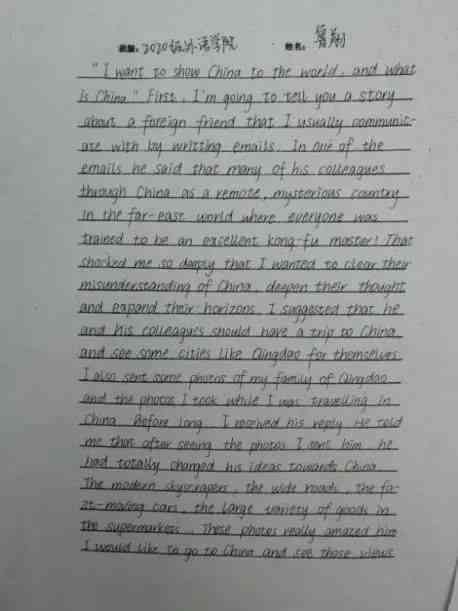 班级: 2020级外语学院 姓名: 曾翔
"I want to show China to the world, and what
is China" First, I'm going to tell you a story
about a foreign friend that I usually communic-
ate with by writting emails. In one of the
emails he said that many of his colleagues
through China as a remote, mysterious country
in the far-east world where everyone was
trained to be an excellent kong-fu master! That
shocked me so deeply that I wanted to clear their
misunderstanding of China, deepen their thought
and expand their horizons. I suggested that he
and his colleagues should have a trip to China
and see some cities like Qingdao for themselves.
I also sent some photos of my family of Qingdao
and the photos I took while I was travelling in
China. Before long, I received his reply. He told
me that after seeing the photos I sent him, he
had totally changed his ideas towards China.
The modern skyscrapers, the wide roads, the fa-
zt-moving cars, the large variety of goods in
the supermarkets... These photos really amazed him
I would like to go to China and see those views